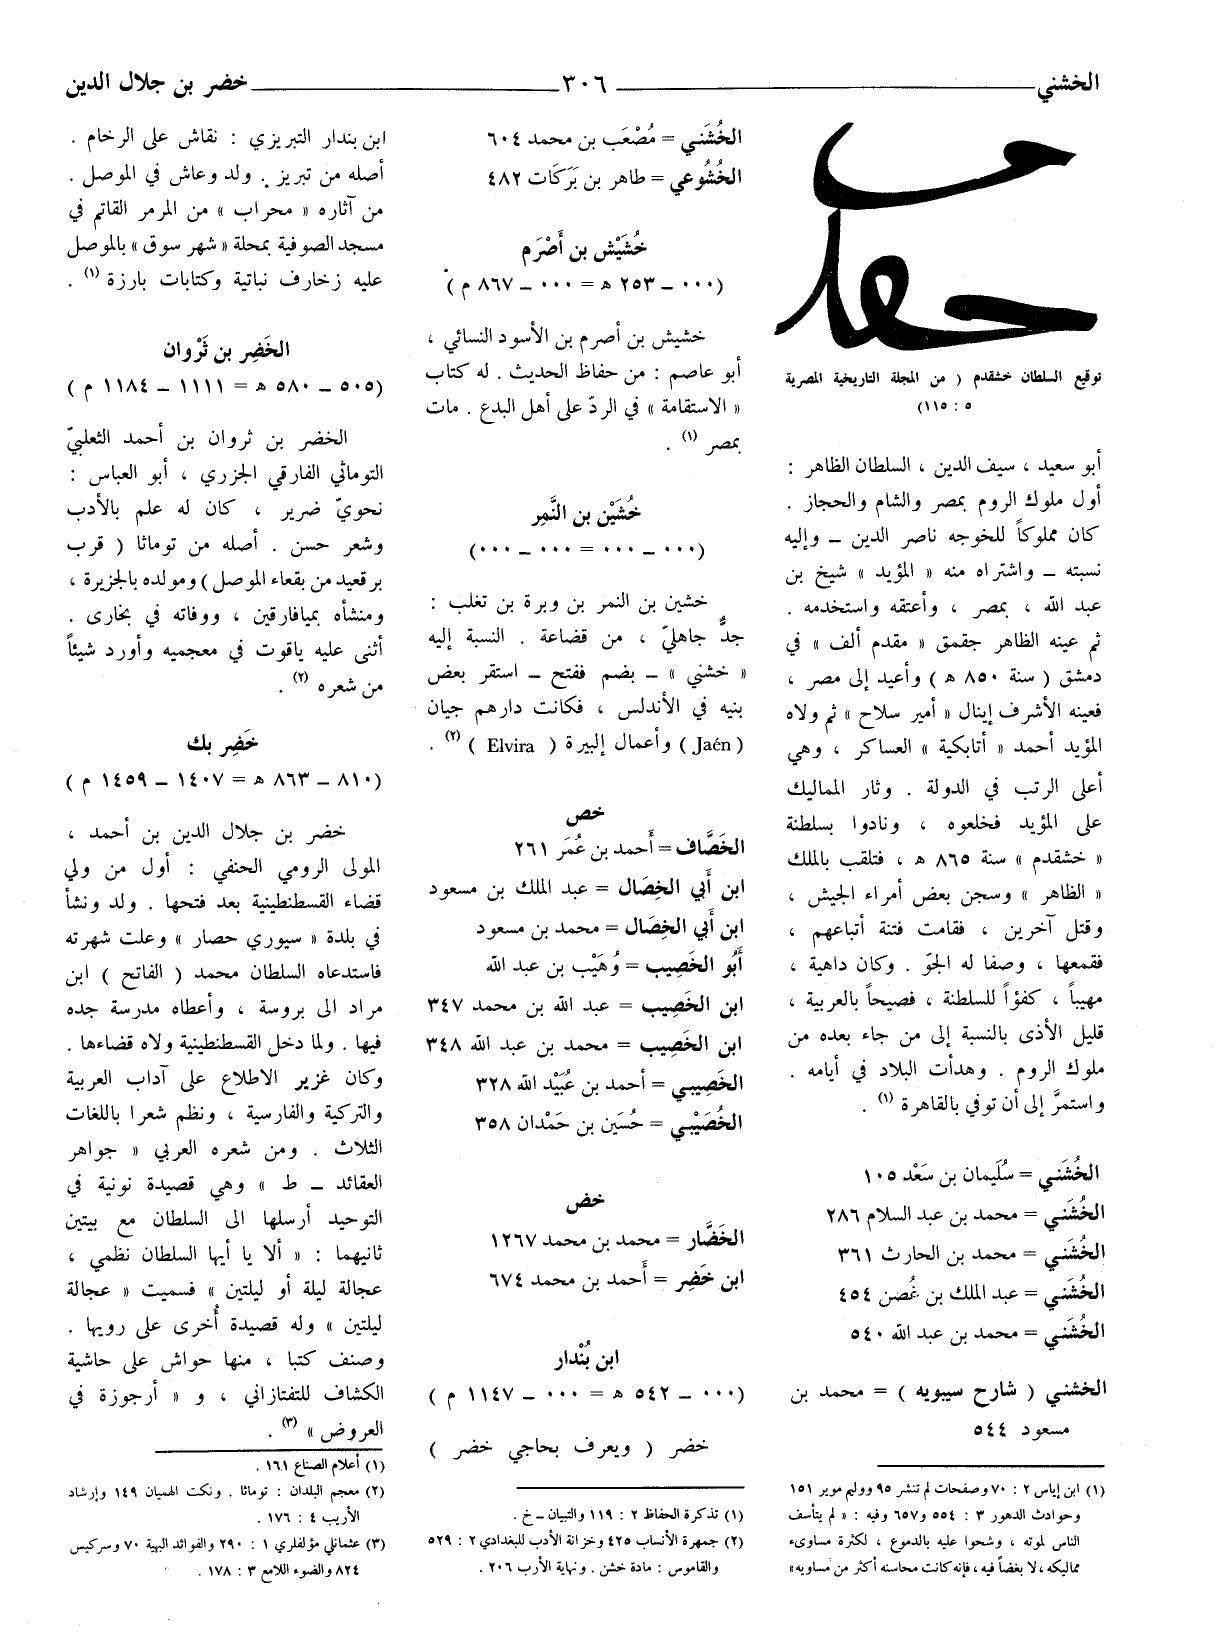 الخشني ٣٠٦ خضر بن جلال الدين
توقيع السلطان خشقدم ( من المجلة التاريخية المصرية
٥ : ١١٥)
أبو سعيد ، سيف الدين ، السلطان الظاهر :
أول ملوك الروم بمصر والشام والحجاز .
كان مملوكاً للخوجه ناصر الدين – وإليه
نسبته – واشتراه منه « المؤيد » شيخ بن
عبد الله ، بمصر ، وأعتقه واستخدمه .
ثم عينه الظاهر جقمق « مقدم ألف » في
دمشق ( سنة ٨٥٠ ه ) وأعيد إلى مصر ،
فعينه الأشرف إينال « أمير سلاح » ثم ولاه
المؤيد أحمد « أتابكية » العساكر ، وهي
أعلى الرتب في الدولة . وثار المماليك
على المؤيد فخلعوه ، ونادوا بسلطنة
« خشقدم » سنة ٨٦٥ ه ، فتلقب بالملك
« الظاهر » وسجن بعض أمراء الجيش ،
وقتل آخرين ، فقامت فتنة أتباعهم ،
فقمعها ، وصفا له الجوّ . وكان داهية ،
مهيباً ، كفؤاً للسلطنة ، فصيحاً بالعربية ،
قليل الأذى بالنسبة إلى من جاء بعده من
ملوك الروم . وهدأت البلاد في أيامه .
واستمرَّ إلى أن توفي بالقاهرة (١) .
الخُشَني = سُلَيمان بن سَعْد ١٠٥
الخُشَني = محمد بن عبد السلام ٢٨٦
الخُشَني = محمد بن الحارث ٣٦١
الخُشَني = عبد الملك بن غُصن ٤٥٤
الخُشَني = محمد بن عبد الله ٥٤٠
الخشني ( شارح سيبويه ) = محمد بن
مسعود ٥٤٤
(١) ابن إياس ٢ : ٧٠ وصفحات لم تنشر ٩٥ ووليم موير ١٥١
وحوادث الدهور ٣ : ٥٥٤ و٦٥٧ وفيه : « لم يتأسف
الناس لموته ، وشحوا عليه بالدموع ، لكثرة مساوىء
مماليكه ، لا بغضاً فيه ، فإنه كانت محاسنه أكثر من مساويه»
الخُشَني = مُصْعَب بن محمد ٦٠٤
الخُشُوعي = طاهر بن بَرَكات ٤٨٢
خُشَيْش بن أَصْرَم
(٠٠٠ – ٢٥٣ ه = ٠٠٠ – ٨٦٧ م )
خشيش بن أصرم بن الأسود النسائي ،
أبو عاصم : من حفاظ الحديث . له كتاب
« الاستقامة » في الردّ على أهل البدع . مات
بمصر (١) .
خُشَيْن بن النَّمِر
(٠٠٠ – ٠٠٠ = ٠٠٠ – ٠٠٠)
خشين بن النمر بن وبرة بن تغلب :
جدٌّ جاهليّ ، من قضاعة . النسبة إليه
« خشني » – بضم ففتح – استقر بعض
بنيه في الأندلس ، فكانت دارهم جيان
( Jaén ) وأعمال إلبيرة ( Elvira ) (٢) .
خص
الخَصَّاف = أَحمد بن عُمَر ٢٦١
ابن أَبي الخِصَال = عبد الملك بن مسعود
ابن أَبي الخِصَال = محمد بن مسعود
أَبُو الخَصيب = وُهَيْب بن عبد الله
ابن الخَصِيب = عبد الله بن محمد ٣٤٧
ابن الخَصِيب = محمد بن عبد الله ٣٤٨
الخَصِيبي = أحمد بن عُبَيْد الله ٣٢٨
الخُصَيْبي = حُسَين بن حَمْدان ٣٥٨
خض
الخَضَّار = محمد بن محمد ١٢٦٧
ابن خَضِر = أَحمد بن محمد ٦٧٤
ابن بُنْدار
(٠٠٠ – ٥٤٢ ه = ٠٠٠ – ١١٤٧ م )
خضر ( ويعرف بحاجي خضر )
(١) تذكرة الحفاظ ٢ : ١١٩ والتبيان – خ .
(٢) جمهرة الأنساب ٤٢٥ وخزانة الأدب للبغدادي ٢ : ٥٢٩
والقاموس : مادة خشن . ونهاية الأرب ٢٠٦ .
ابن بندار التبريزي : نقاش على الرخام .
أصله من تبريز . ولد وعاش في الموصل .
من آثاره « محراب » من المرمر القاتم في
مسجد الصوفية بمحلة « شهر سوق » بالموصل
عليه زخارف نباتية وكتابات بارزة (١) .
الخَضِر بن ثَرْوان
(٥٠٥ – ٥٨٠ ه = ١١١١ – ١١٨٤ م )
الخضر بن ثروان بن أحمد الثعلبيّ
التوماثي الفارقي الجزري ، أبو العباس :
نحويّ ضرير ، كان له علم بالأدب
وشعر حسن . أصله من توماثا ( قرب
برقعيد من بقعاء الموصل ) ومولده بالجزيرة ،
ومنشأه بميافارقين ، ووفاته في بخارى .
أثنى عليه ياقوت في معجميه وأورد شيئاً
من شعره (٢) .
خَضِر بك
(٨١٠ – ٨٦٣ ه = ١٤٠٧ – ١٤٥٩ م )
خضر بن جلال الدين بن أحمد ،
المولى الرومي الحنفي : أول من ولي
قضاء القسطنطينية بعد فتحها . ولد ونشأ
في بلدة « سيوري حصار » وعلت شهرته
فاستدعاه السلطان محمد ( الفاتح ) ابن
مراد الى بروسة ، وأعطاه مدرسة جده
فيها . ولما دخل القسطنطينية ولاه قضاءها .
وكان غزير الاطلاع على آداب العربية
والتركية والفارسية ، ونظم شعرا باللغات
الثلاث . ومن شعره العربي « جواهر
العقائد – ط » وهي قصيدة نونية في
التوحيد أرسلها الى السلطان مع بيتين
ثانيهما : « ألا يا أيها السلطان نظمي ،
عجالة ليلة أو ليلتين » فسميت « عجالة
ليلتين » وله قصيدة أُخرى على رويها .
وصنف كتبا ، منها حواش على حاشية
الكشاف للتفتازاني ، و « أرجوزة في
العروض » (٣) .
(١) أعلام الصناع ١٦١ .
(٢) معجم البلدان : توماثا . ونكت الهميان ١٤٩ وإرشاد
الأريب ٤ : ١٧٦ .
(٣) عثمانلي مؤلفلري ١ : ٢٩٠ والفوائد البهية ٧٠ وسركيس
٨٢٤ والضوء اللامع ٣ : ١٧٨ .